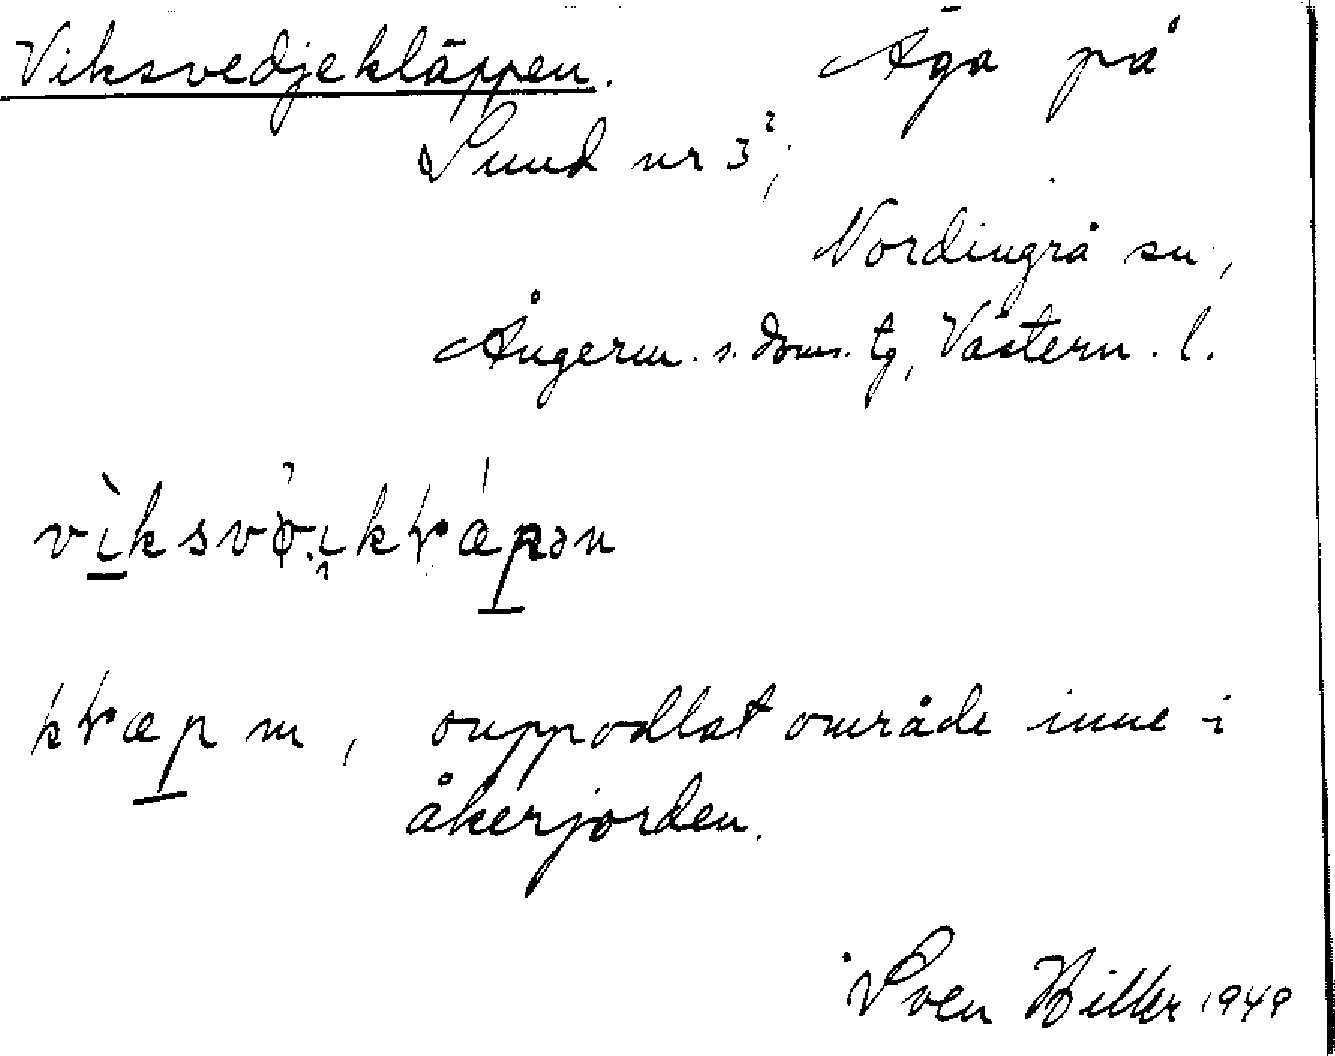 Viksvedjekläppen. Äga på
Sund nr 3²;
Nordingrå sn,
Ångerm. s. doms. tg, Västern. l.
m, ouppodlat område inne i
åkerjorden.
Sven Hiller 1949